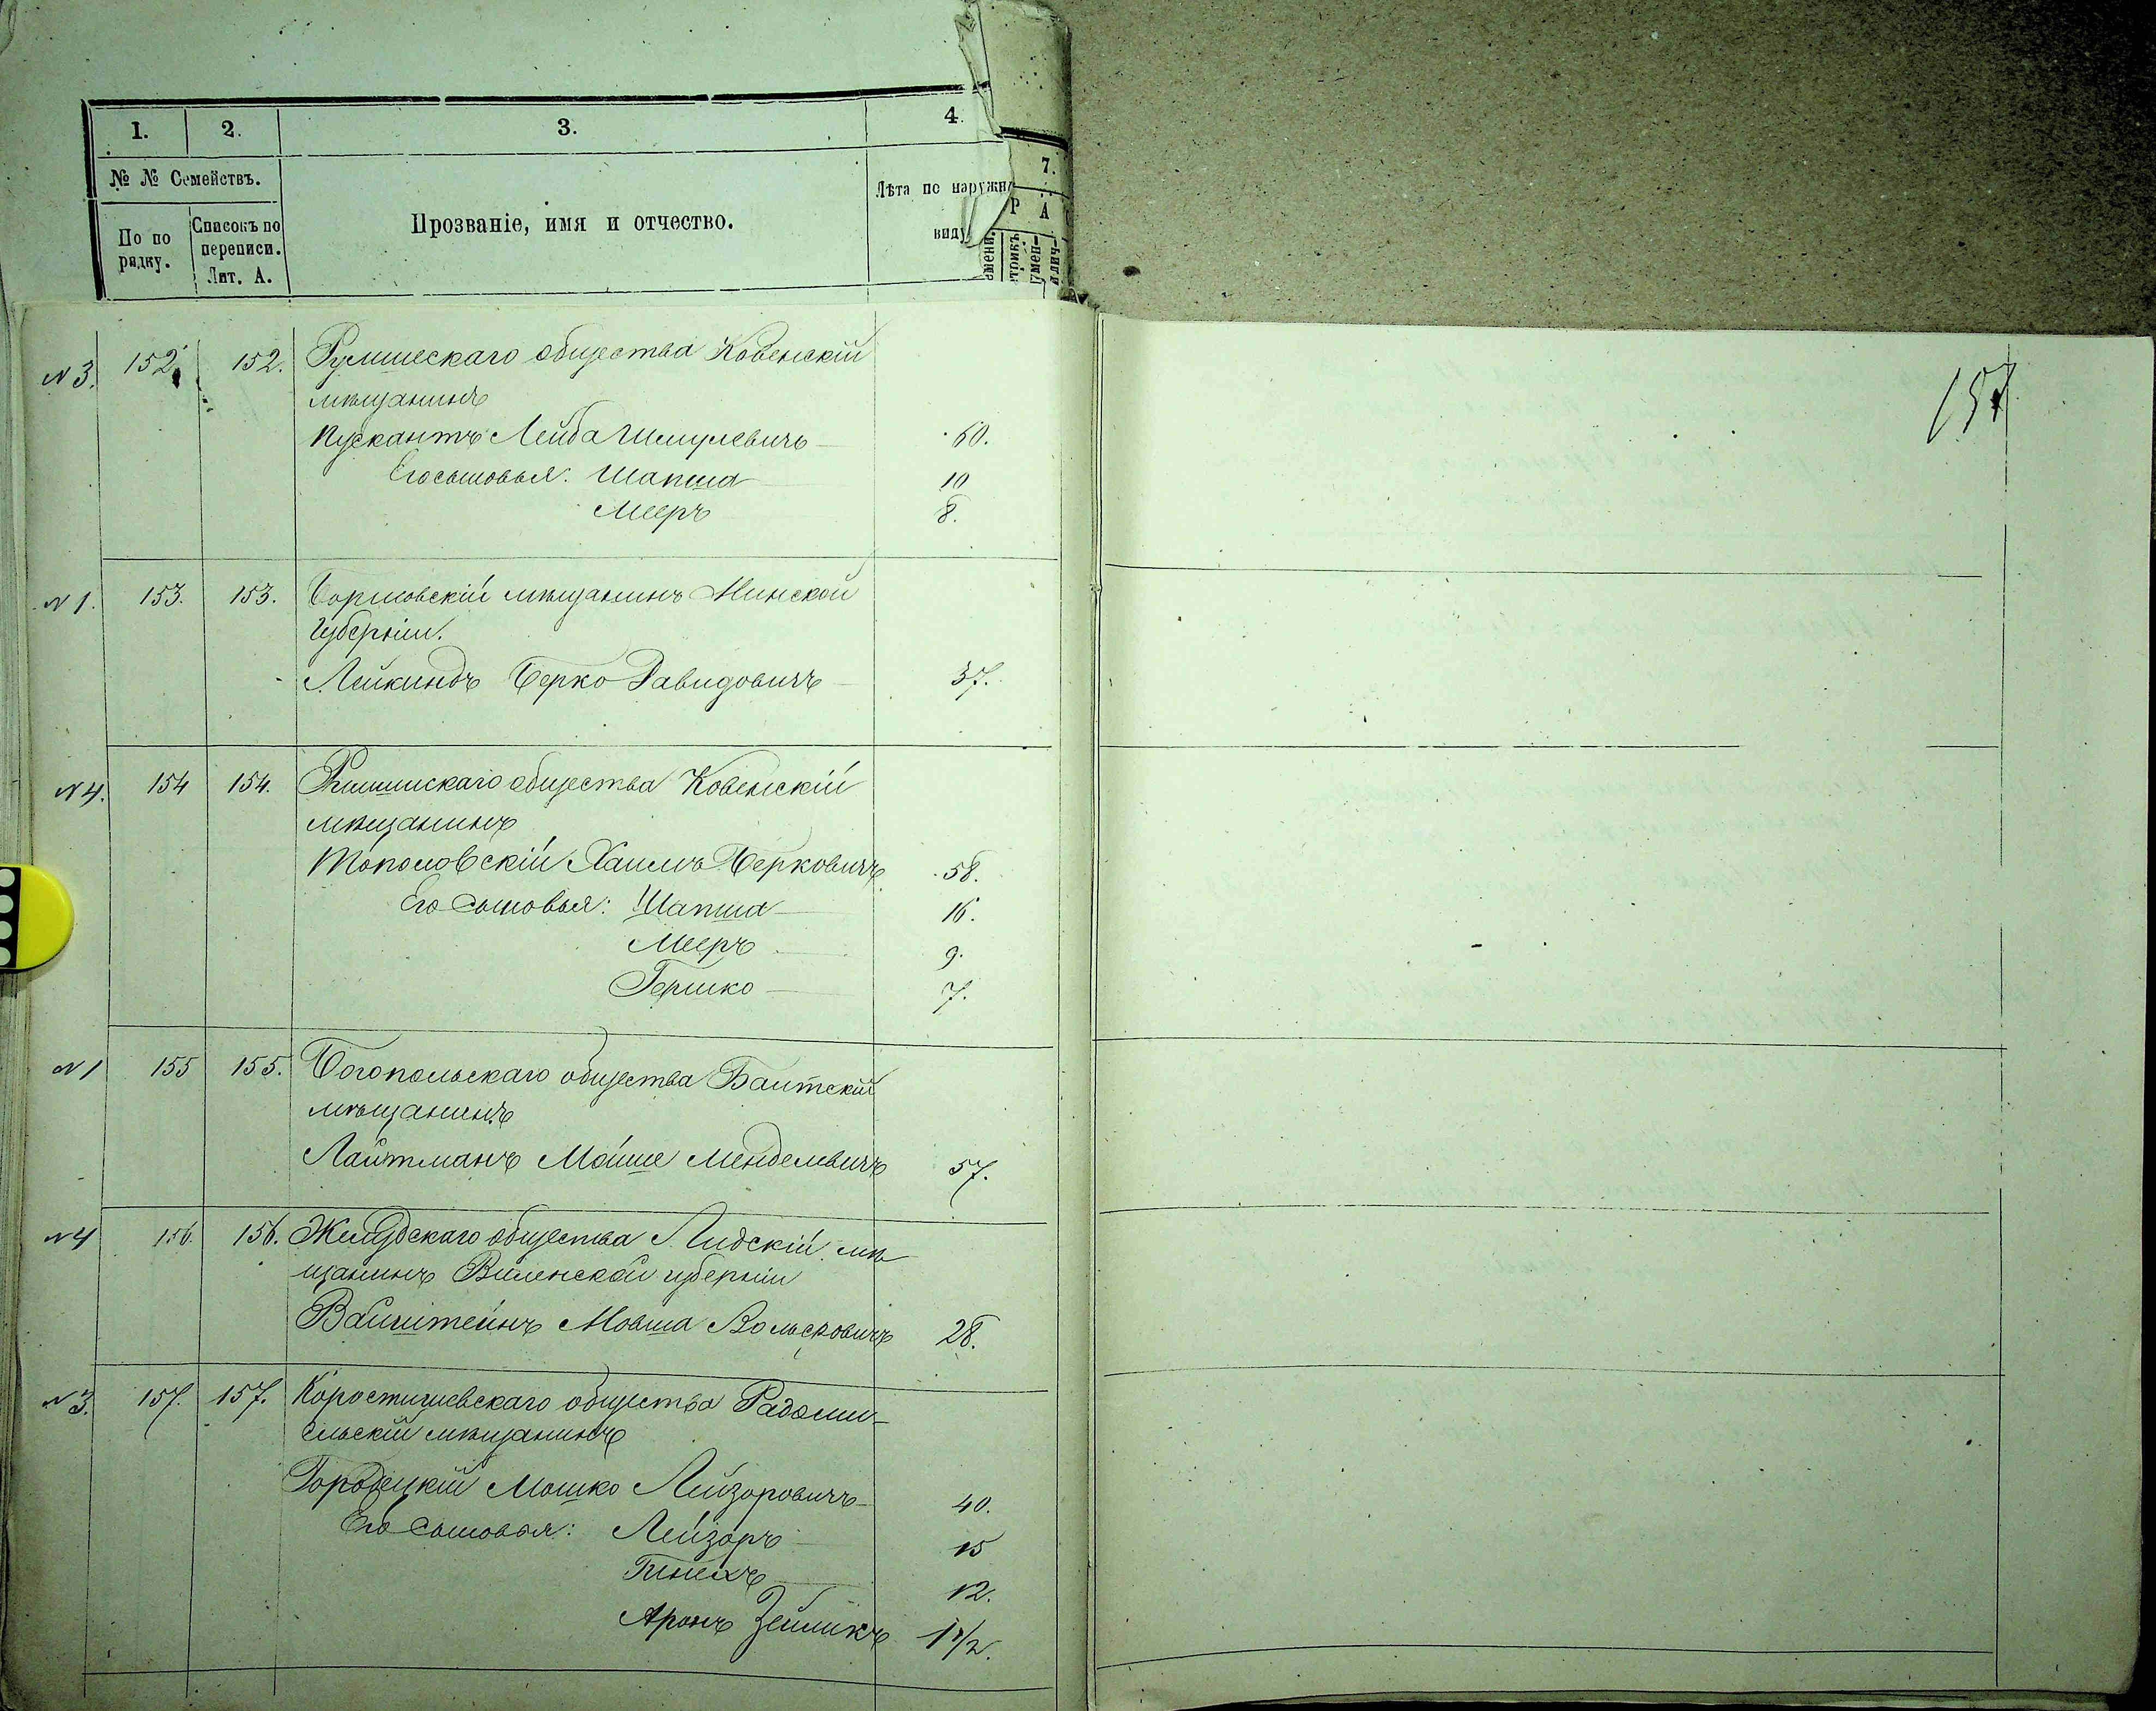 1. 2. 3. 4.
7.
№ № Семействъ.
Лѣта по наружн
Р А
По по рядку.
Списокъ по переписи. Лит. А.
Прозваніе, имя и отчество.
виду
157
N 3. 152. 152. общества Ковенскій
мѣщанинъ
Пускантъ Лейба Шмулевичъ 60.
Его сыновья: Шапша 10
Мееръ 8.
N 1. 153. 153. Борисовскій мѣщанинъ Минской
Губерніи.
Лейкиндъ Берко Давидовичъ 37.
N 4. 154 154. общества Ковенскій
мѣщанинъ
Тополовскій Хаимъ Берковичъ 58.
Его сыновья: Шапша 16.
Мееръ 9.
Гершко 7.
N 1 155 155. Богопольскаго общества Балтскій
мѣщанинъ
Лайтманъ Мойше Менделевичъ 57.
N 4 156. 156. Желудскаго общества Лидскій мѣ
щанинъ Виленской губерніи
Вайнштейнъ Мовша Вольфовичъ 28.
N 3. 157. 157. Коростишевскаго общества Радомы-
сльскій мѣщанинъ
Городецкій Мошко Лейзоровичъ 40.
Его сыновья: Лейзоръ 15
12.
Аронъ Зейликъ 1 1/2.